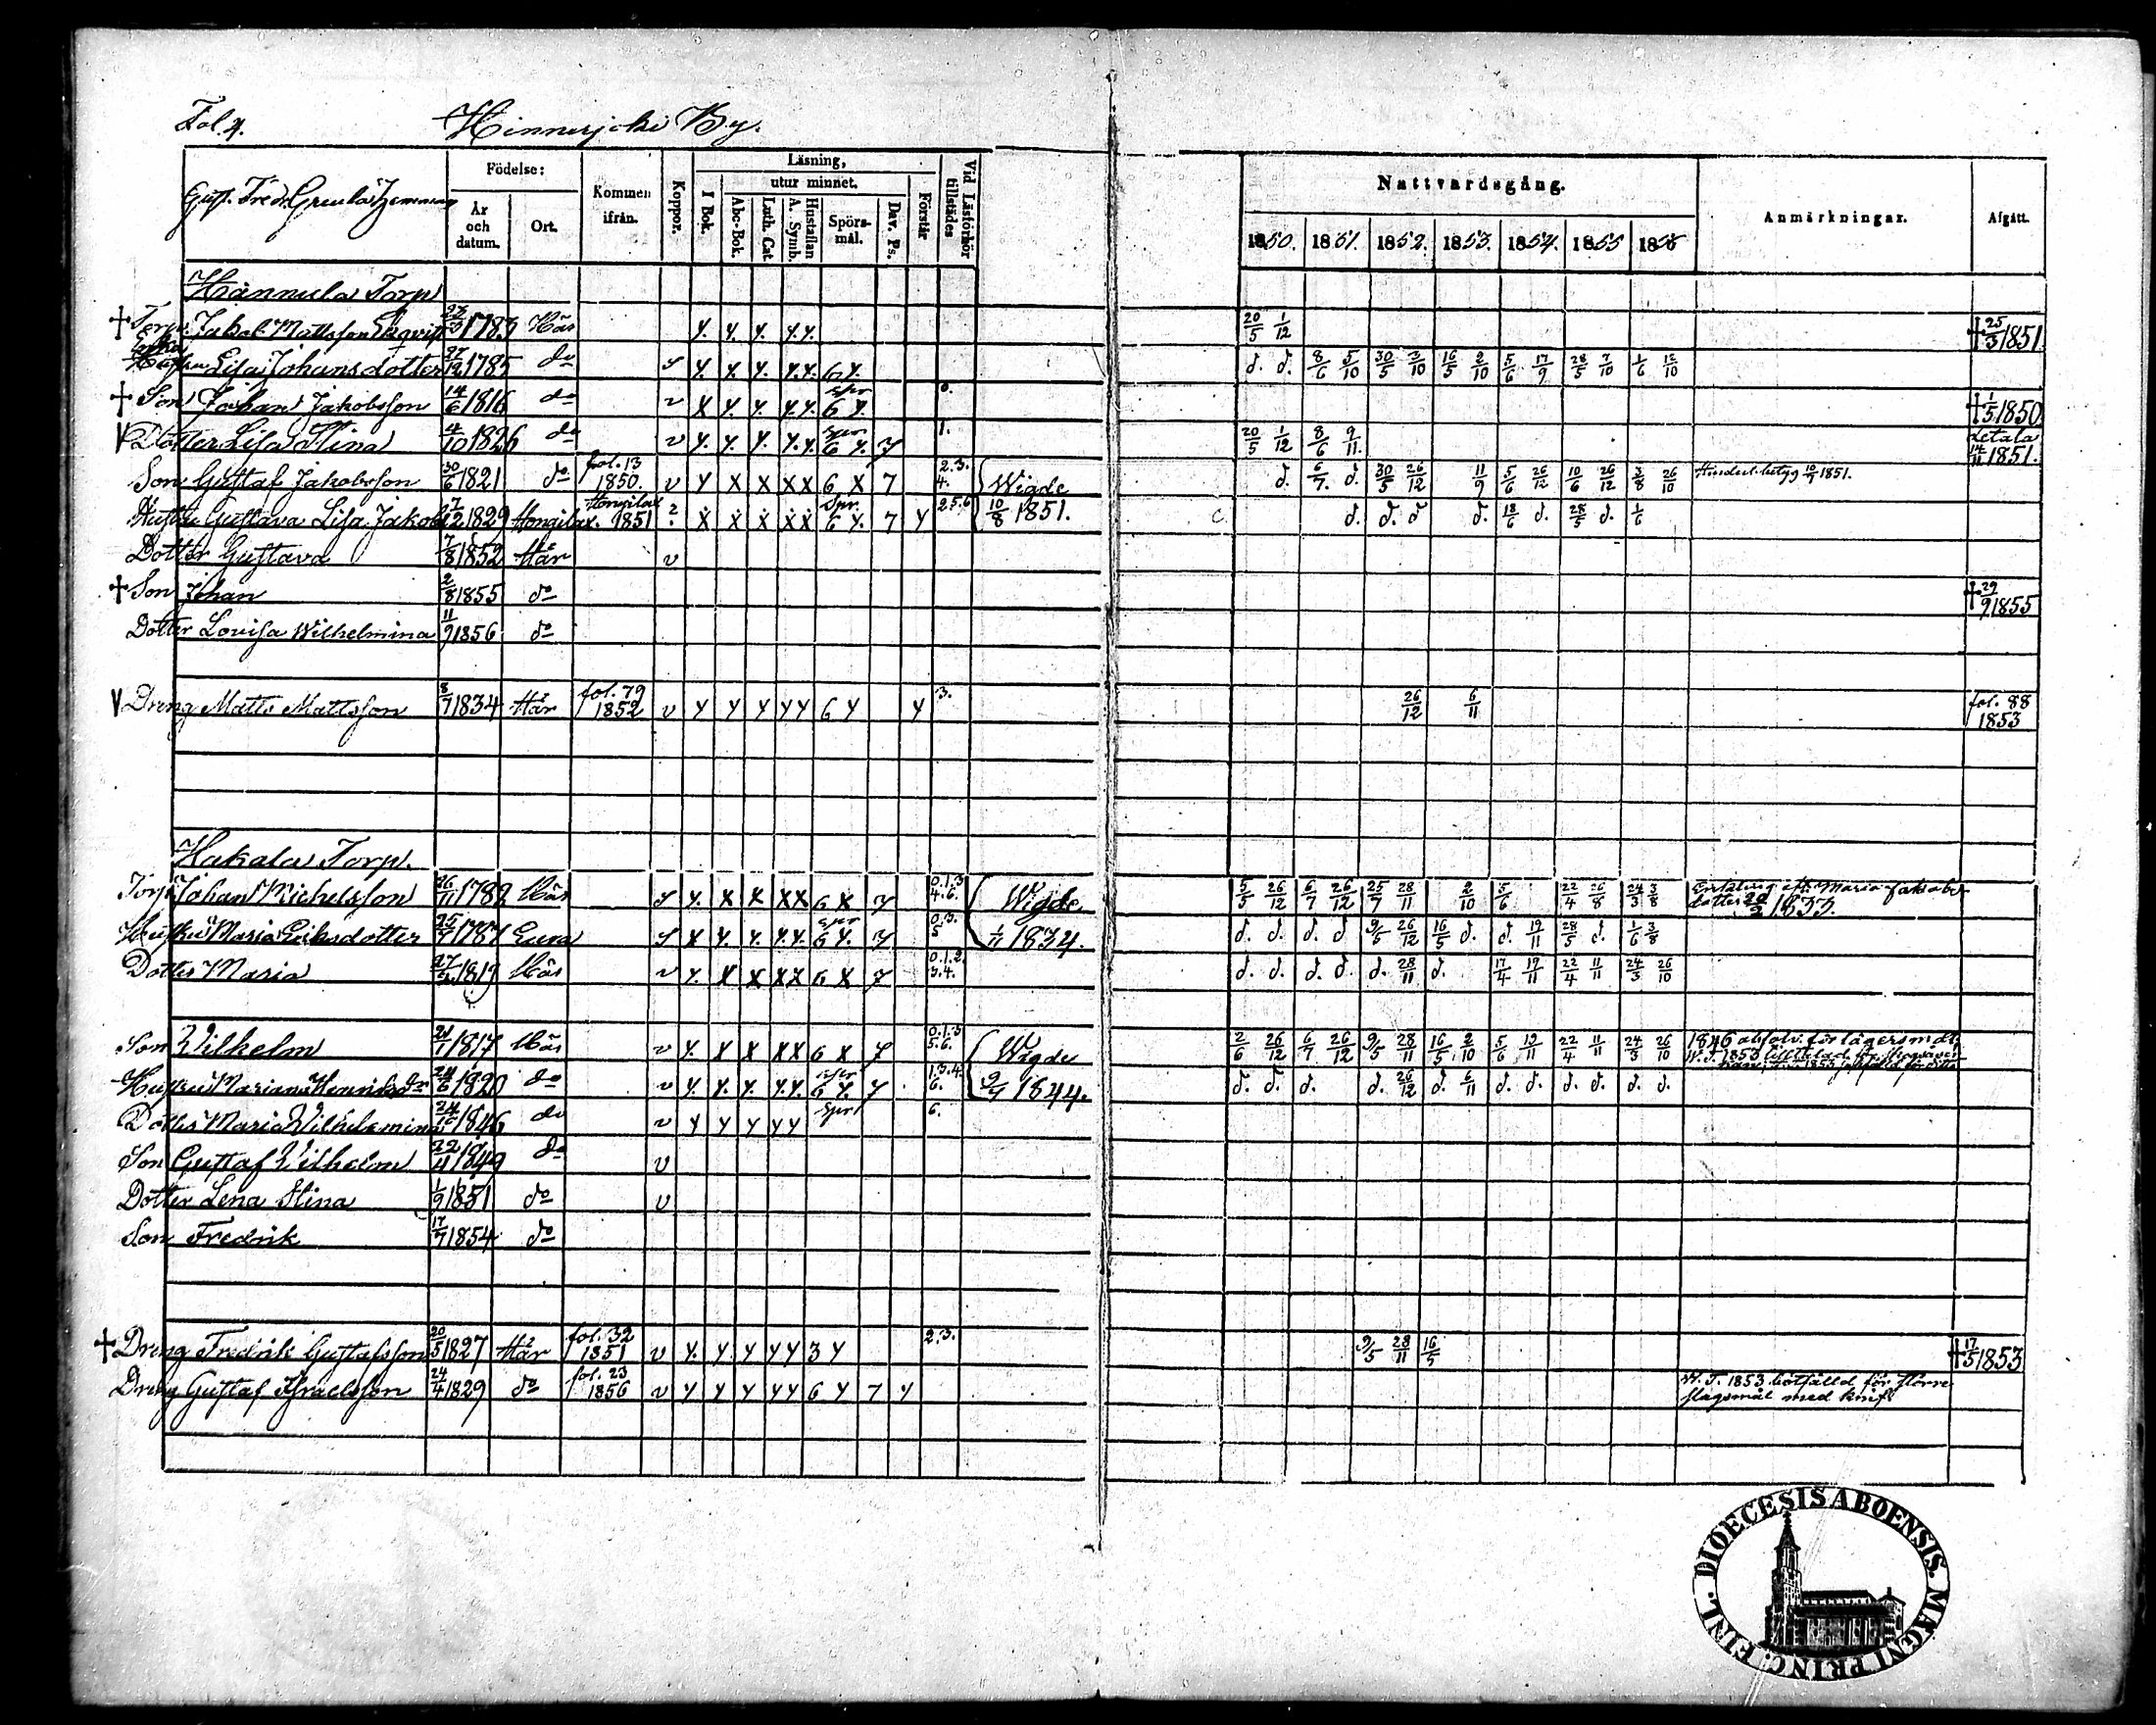 Fol. 4. Hinnerjoki By.
Födelse:
Läsning,
utur minnet.
År och datum.
Ort.
Kommen ifrån.
Koppor.
I Bok.
Abc-Bok.
Luth. Cat
Hustaflan A. Symb.
Spörs-mål.
Dav. Ps.
Förstår
Vid Läsförhör tillstädes
Nattvardsgång.
Anmärkningar.
Afgått.
1850. 1851. 1852. 1853. 1854. 1855 185
Hannula Torp
† Torp. Jakob Mattsson 1783 Här y. y. y. y.y. 20/5 1/12 † 25/3 1851
Lisa Johansdotter 27/12 1785 do y. x y. y.y. 6 y. d. d. 8/6 5/10 30/5 3/10 16/5 2/10 5/6 17/9 28/5 7/10 1/6 12/10
† Son Johan Jakobsson 14/6 1816 do v x y. y. y.y. spr 6 y. 0. † 1/5 1850
V Dotter Lisa Stina 4/10 1826 do v y. y. y. y.y. spr 6 y. 7 1. 20/5 1/12 8/6 9/11 Letala 14/11 1851.
Son Gustaf Jakobsson 30/6 1821 do fol. 13 1850. v y x x x x 6 x 7 2.3. 4. Wigde d. 6/7. d. 30/5 26/12 11/9 5/6 26/12 10/6 26/12 3/8 26/10 1851.
Hustru Gustava Lisa Jakobs 1829 Hongilax. Hongilax 1851 ? x x x x x Spr. 6 y. 7 y 2.5.6 10/8 1851. d. d. d d. 18/6 d. 28/5 d. 1/6
Dotter Gustava 7/8 1852 Här v
† Son Johan 2/8 1855 do † 29/9 1855
Dotter Lovisa Wilhelmina 11/9 1856 do
V Dreng Matts Mattsson 8/7 1834 Här fol. 79 1852 v y y y y y 6 y y 3. 26/12 6/11 fol. 88 1853
Hakala Torp.
Torp. Johan Michelsson 26/11 1789 Här y. x x x x 6 x 7 0.1.3 4.6. Wigde 5/5 26/12 6/7 26/12 25/7 28/11 2/10 5/6 22/4 26/8 24/3 3/8 Maria Jakobs
dotter
Hustru Maria Eriksdotter 1787 Eura x y. y. y.y. spr 6 y. 7 0.3. 5 1/11 1834. d. d. d. d 9/5 26/12 16/5 d. d. 19/11 28/5 d. 1/6 3/8
Dotter Maria 1819 Här v y. x x x x 6 x 7 0.1.2 3.4. d. d. d. d. d. 28/11 d. 17/4 19/11 22/4 11/11 24/3 26/10
Son Wilhelm 1817 Här v y. x x x x 6 x 7 0.1.3 5.6. Wigde 2/6 26/12 6/7 26/12 9/5 28/11 16/5 2/10 5/6 19/11 22/4 11/11 24/3 26/10 1846 absolv. för lägersmål.
W. T. 1853
Hustru Maria Henriksdr 24/6 1820 do v y. y. y. y.y. spr 6 y. 7 1.3.4. 6. 9/7 1844. d. d. d. d. 26/12 d. 6/11 d. d. d. d. d. d.
Dotter Maria Wilhelmina 1846 do v y y y y y spr 6.
Son Gustaf Wilhelm 22/11 1849 do v
Dotter Lena Stina 1/9 1851 do v
Son Fredrik 17/7 1854 do
† Dreng Fredrik Gustafsson 20/5 1827 Här fol. 32 1851 v y. y. y y y 3 y 2.3. 9/5 28/11 16/5 † 17/5 1853
Dreng Gustaf Israelsson 24/4 1829 do fol. 23 1856 v y y y y y 6 y 7 y W. T. 1853 botfälld för större
slagsmål med knif
DIOECESIS ABOENSIS. MAGNI PRINC. FINL.